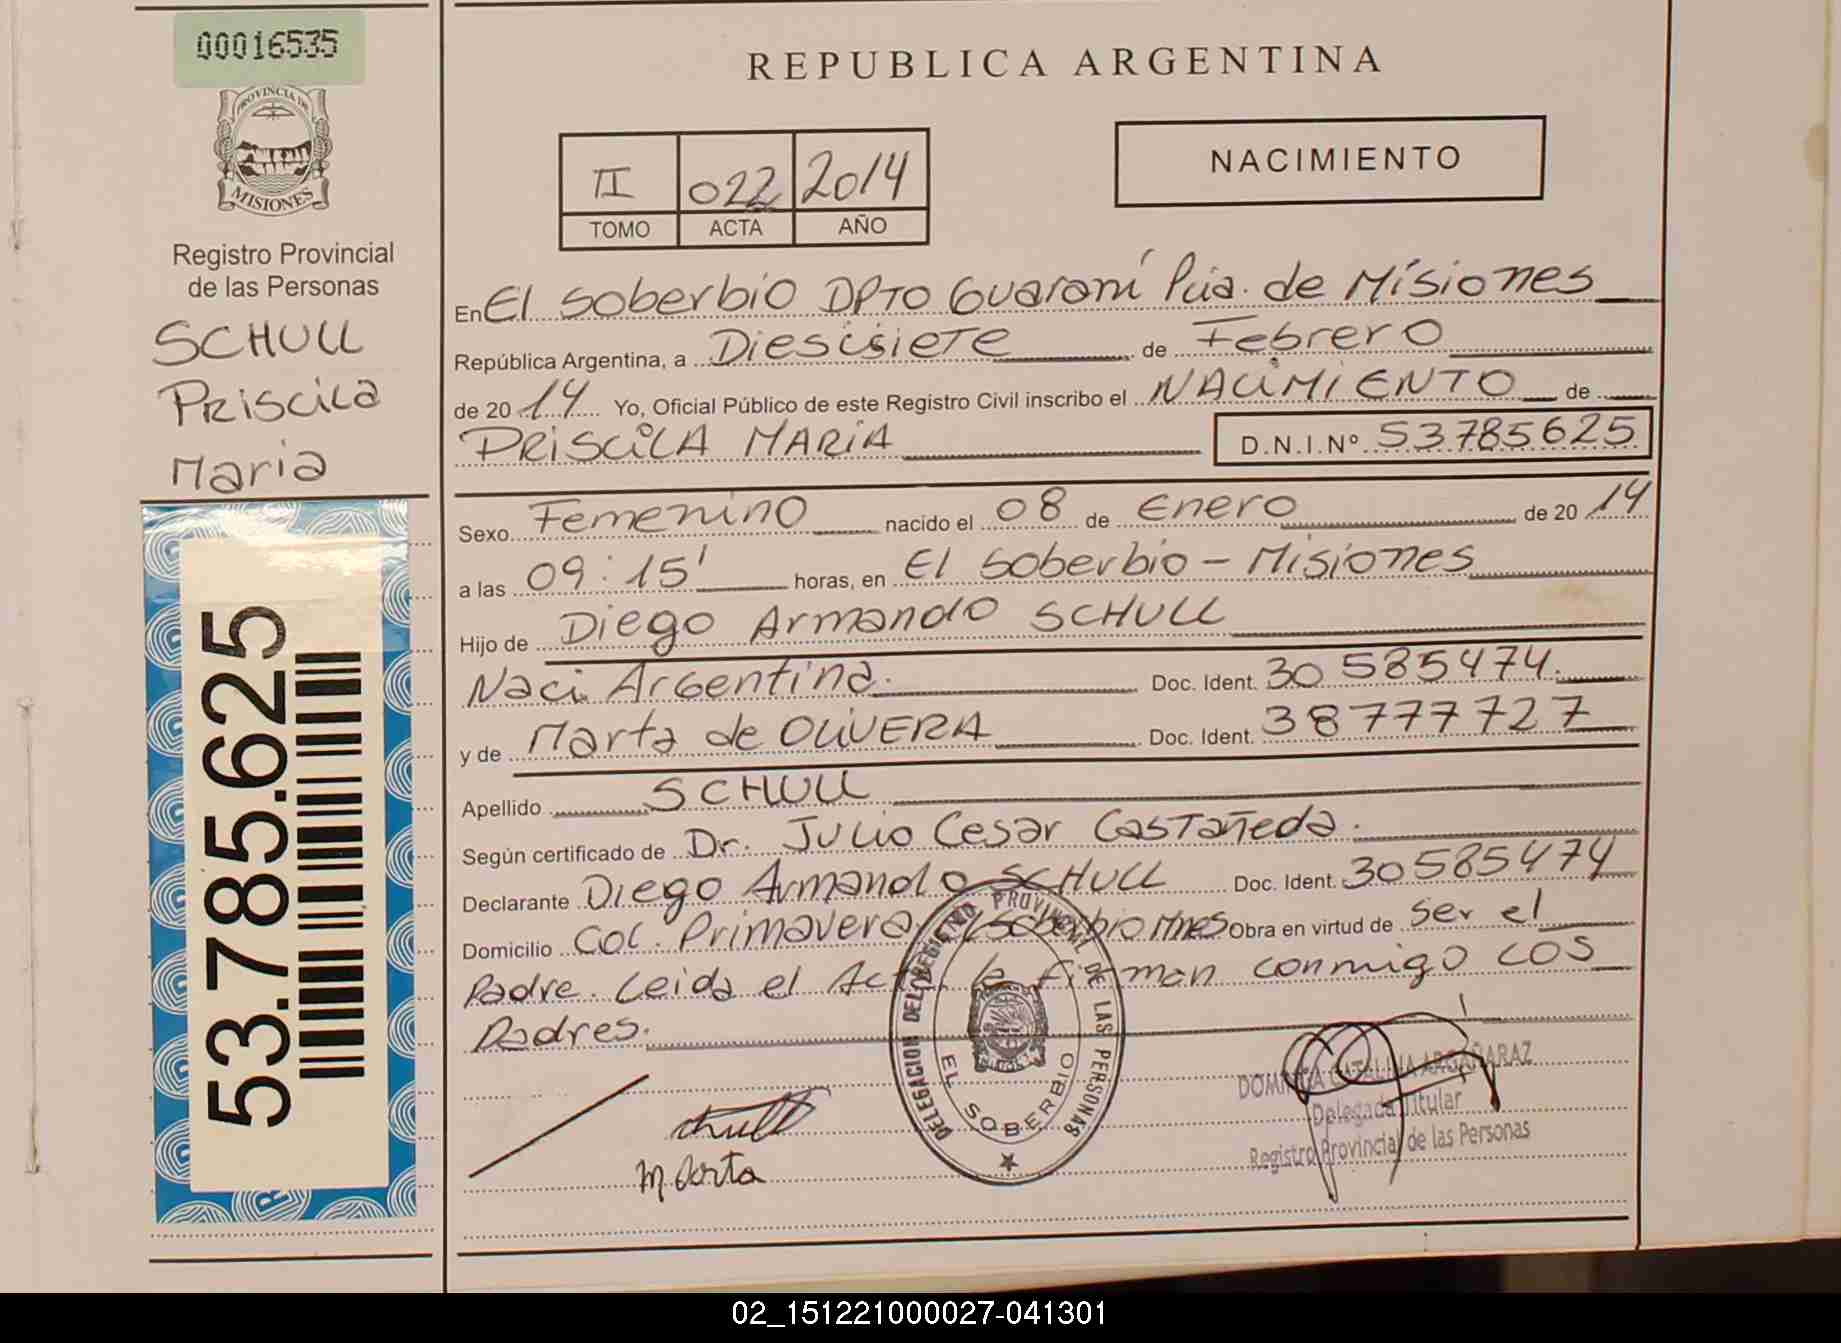 00016535
PROVINCIA DE
MISIONES
Registro Provincial
de las Personas
SCHULL
PRiSCiLa
Maria
53.785.625
REPUBLICA ARGENTINA
NACIMIENTO
II 022 2014
TOMO ACTA AÑO
En El Soberbio DPTO Guaraní Pcia. de Misiones
República Argentina, a Diesisiete de Febrero
de 20 14 Yo, Oficial Público de este Registro Civil inscribo el NACiMIENTO de
PRiSCiLA MARiA D.N.I.Nº 53785625
Sexo Femenino nacido el 08 de Enero de 20 14
a las 09:15' horas, en El Soberbio - Misiones
Hijo de Diego Armando SCHULL
Naci. Argentina. Doc. Ident. 30 585474.
y de Marta de OLiVERA Doc. Ident. 38777727
Apellido SCHULL
Según certificado de Dr. Julio Cesar Castañeda.
Declarante Diego Armando SCHULL Doc. Ident. 30585474
Domicilio Col. Primavera Soberbio Mnes Obra en virtud de ser el
Padre. Leida el Acta la firman conmigo LOS
Padres.
DELEGACION DEL REGISTRO PROVINCIAL DE LAS PERSONAS
EL SOBERBIO
DOMINGA CATALINA ARGAÑARAZ
Delegada Titular
Registro Provincial de las Personas
M arta
02_151221000027-041301